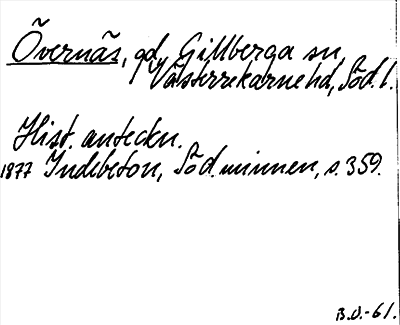 Övernäs, gd, Gillberga sn
Västerrekarne hd, Söd. l.
Hist. anteckn.
1877 Indebetou, Söd. minnen, s. 359.
B.O.-61.